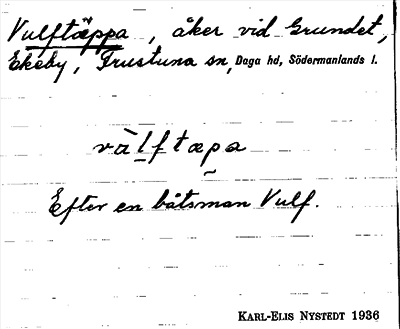 Vulftäppa, åker vid Grundet,
Ekeby, Frustuna sn, Daga hd, Södermanlands l.
vàlftæpa
Efter en båtsman Vulf.
KARL-ELIS NYSTEDT 1936